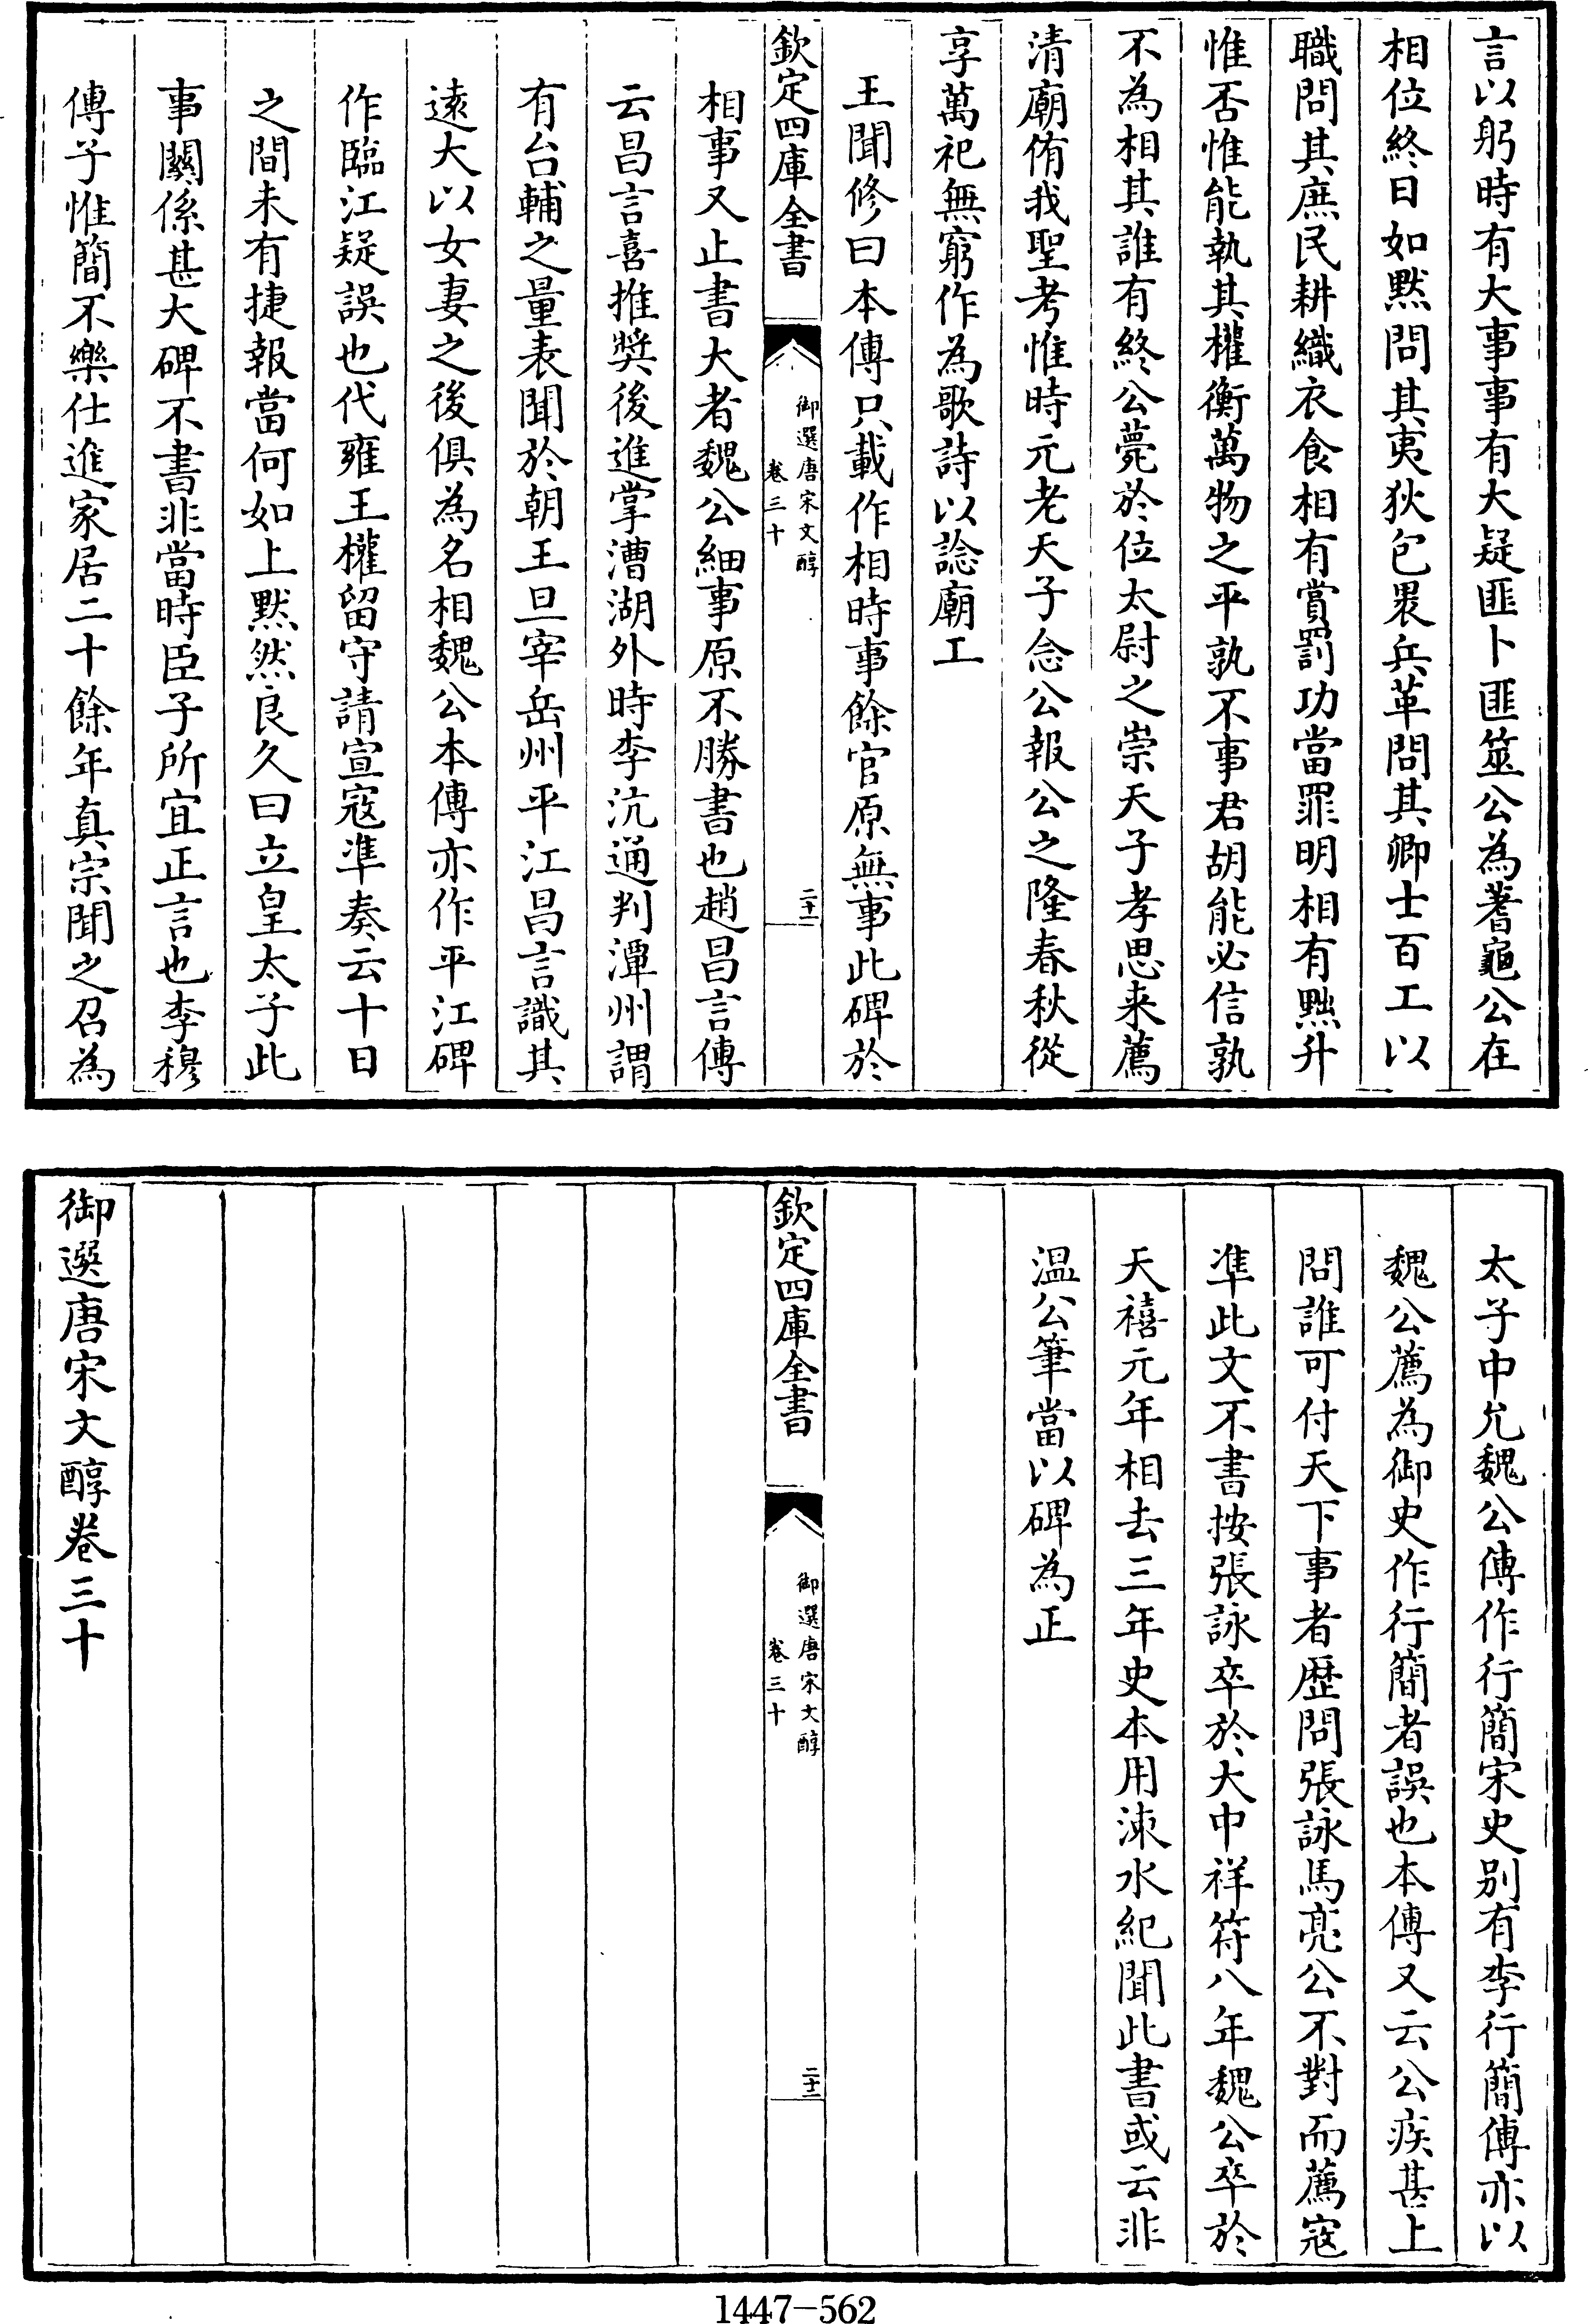 言以躬時有大事事有大疑匪卜匪筮公為蓍龜公在
相位終日如黙問其夷狄包褁兵革問其卿士百工以
職問其庶民耕織衣食相有賞罰功當罪明相有黜升
惟否惟能執其權衡萬物之平孰不事君胡能必信孰
不為相其誰有終公薨於位太尉之崇天子孝思来薦
清廟侑我聖考惟時元老天子念公報公之隆春秋從
享萬祀無窮作為歌詩以諗廟工
王聞修曰本傳只載作相時事餘官原無事此碑於
欽定四庫全書
御選唐宋文醇
卷三十
二十一
相事又止書大者魏公細事原不勝書也趙昌言傳
云昌言喜推奬後進掌漕湖外時李沆通判潭州謂
有台輔之量表聞於朝王旦宰岳州平江昌言識其
逺大以女妻之後俱為名相魏公本傳亦作平江碑
作臨江疑誤也代雍王權留守請宣寇準奏云十日
之間未有捷報當何如上黙然良久曰立皇太子此
事關係甚大碑不書非當時臣子所宜正言也李穆
傳子惟簡不樂仕進家居二十餘年真宗聞之召為
太子中允魏公傳作行簡宋史别有李行簡傳亦以
魏公薦為御史作行簡者誤也本傳又云公疾甚上
問誰可付天下事者歴問張詠馬亮公不對而薦寇
準此文不書按張詠卒於大中祥符八年魏公卒於
天禧元年相去三年史本用涑水紀聞此書或云非
温公筆當以碑為正
欽定四庫全書
御選唐宋文醇
卷三十
二十二
御選唐宋文醇卷三十
1447-562